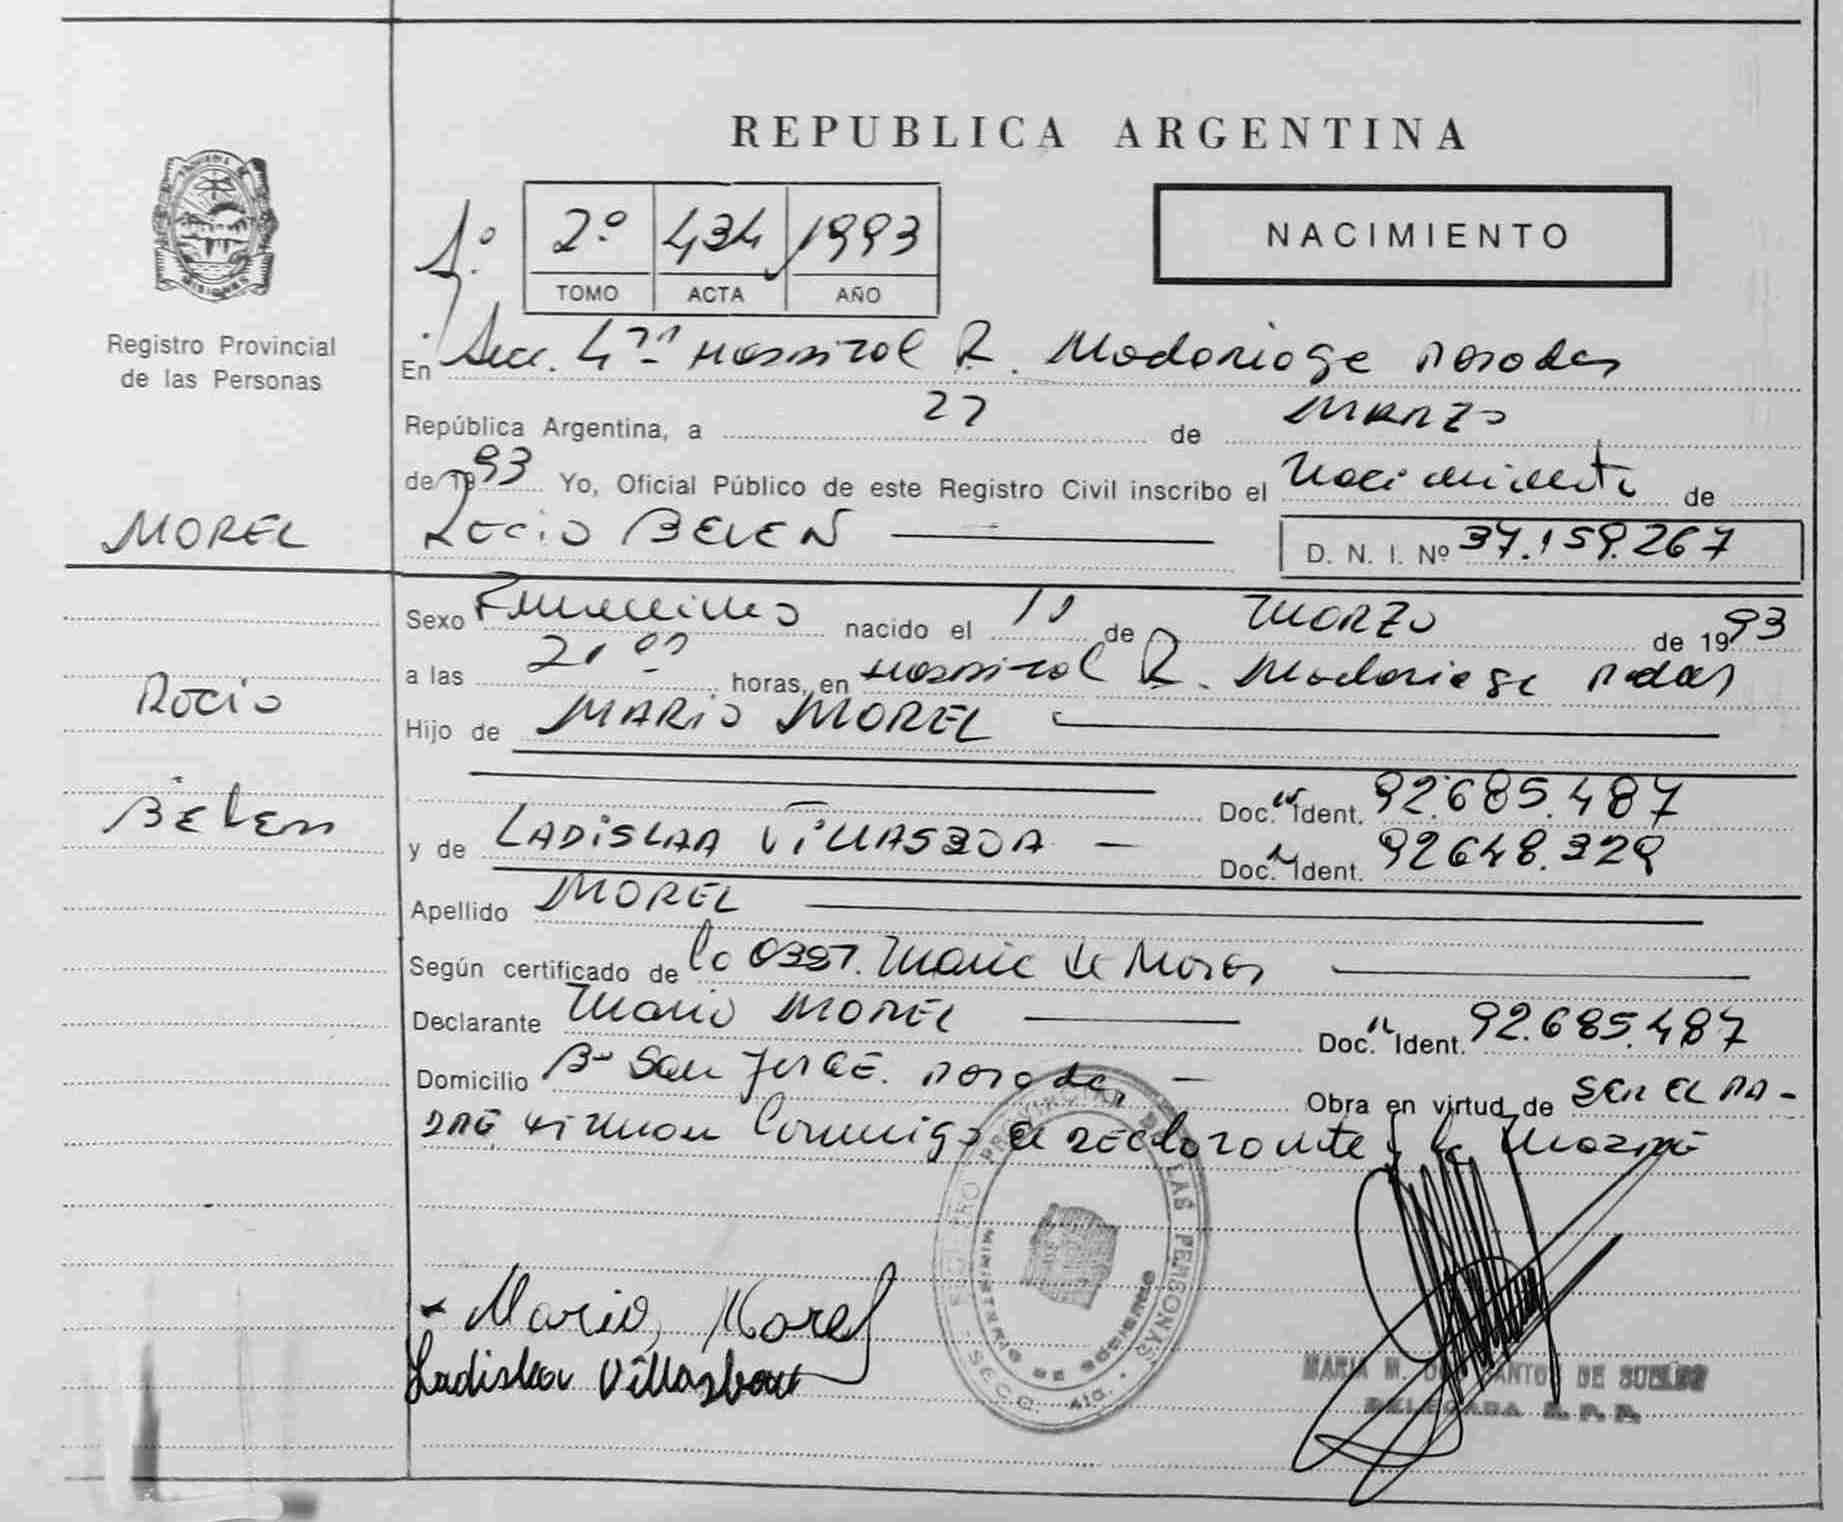 REPUBLICA ARGENTINA
NACIMIENTO
1º 2º 434 1993
TOMO ACTA AÑO
Registro Provincial
de las Personas
En Secc. 4ta Hospital R. Madariaga Posadas
República Argentina, a 27 de Marzo
de 1993 Yo, Oficial Público de este Registro Civil inscribo el Nacimiento de
MOREL
Rocio BELEN D. N. I. Nº 37.159.267
Sexo Femenino nacido el de Marzo de 1993
a las 21 00 horas, en Hospital R. Madariaga Pdas
Rocio
Hijo de MARIO MOREL
Belen
Doc. Ident. 92.685.487
y de LADISLAA VILLASBOA Doc. Ident. 92648.329
Apellido MOREL
Según certificado de la Obst. Marie de Moran
Declarante Mario MOREL Doc. Ident. 92.685.487
Domicilio Bº San JORGE. Posadas Obra en virtud de SER EL PA-
DRE firman Conmigo el declarante y la Madre
REGISTRO PROVINCIAL DE LAS PERSONAS
MINISTERIO DE GOBIERNO
SECC. 4ta.
Mario Morel
Ladislaa Villasboa
MARIA M. DOS SANTOS DE
DELEGADA R. P. P.